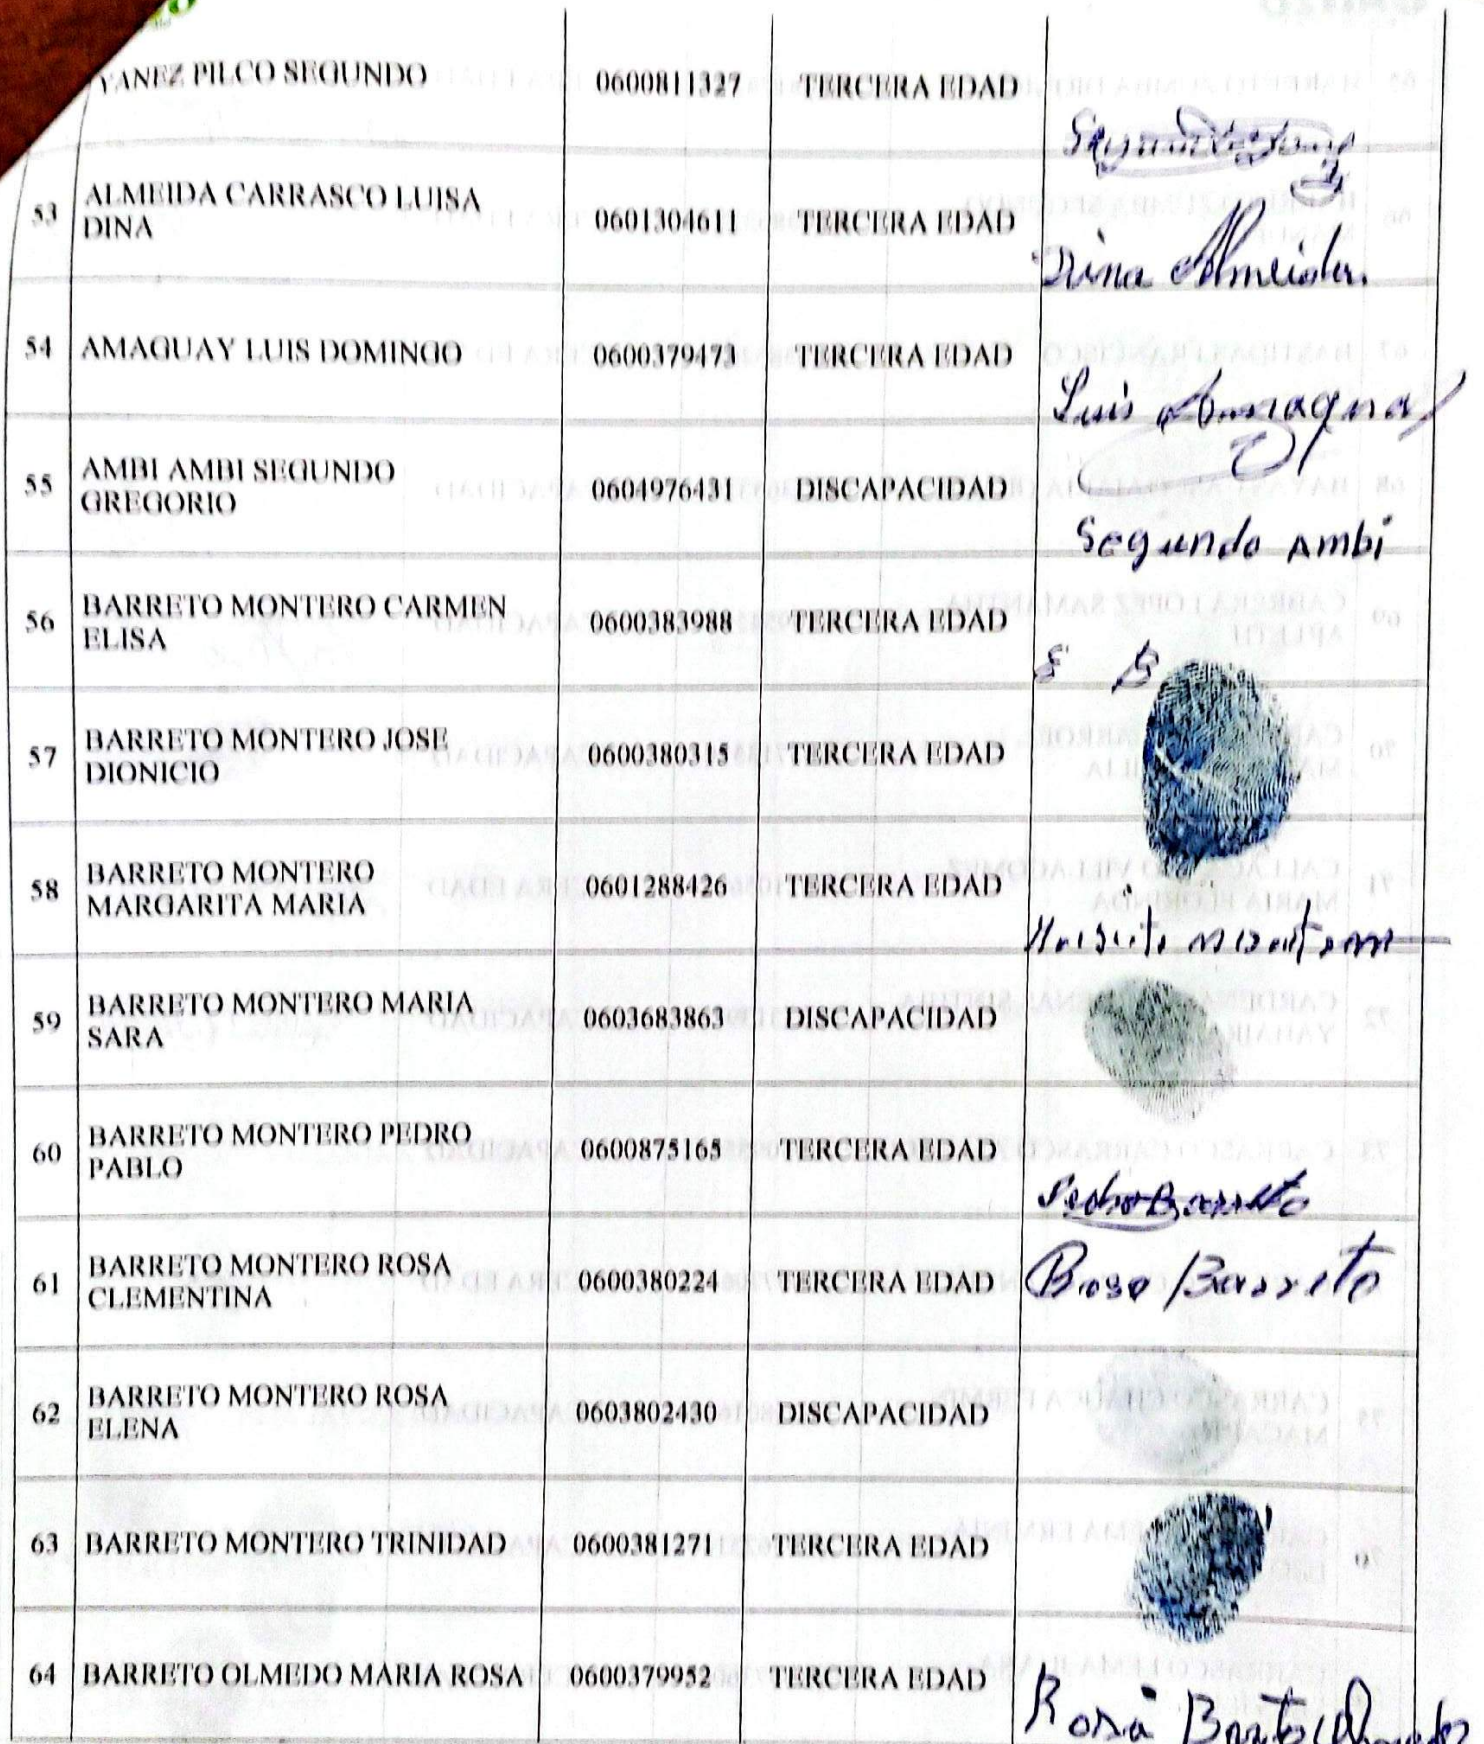 YANEZ PILCO SEGUNDO 0600811327 TERCERA EDAD
53 ALMEIDA CARRASCO LUISA
DINA 0601304611 TERCERA EDAD
Dina Almeida.
54 AMAGUAY LUIS DOMINGO 0600379473 TERCERA EDAD
Luis Amaguay
55 AMBI AMBI SEGUNDO
GREGORIO 0604976431 DISCAPACIDAD
Segundo Ambi
56 BARRETO MONTERO CARMEN
ELISA 0600383988 TERCERA EDAD
E B
57 BARRETO MONTERO JOSE
DIONICIO 0600380315 TERCERA EDAD
58 BARRETO MONTERO
MARGARITA MARIA 0601288426 TERCERA EDAD
59 BARRETO MONTERO MARIA
SARA 0603683863 DISCAPACIDAD
60 BARRETO MONTERO PEDRO
PABLO 0600875165 TERCERA EDAD
Pedro Barreto
61 BARRETO MONTERO ROSA
CLEMENTINA 0600380224 TERCERA EDAD
Rosa Barreto
62 BARRETO MONTERO ROSA
ELENA 0603802430 DISCAPACIDAD
63 BARRETO MONTERO TRINIDAD 0600381271 TERCERA EDAD
64 BARRETO OLMEDO MARIA ROSA 0600379952 TERCERA EDAD
Rosa